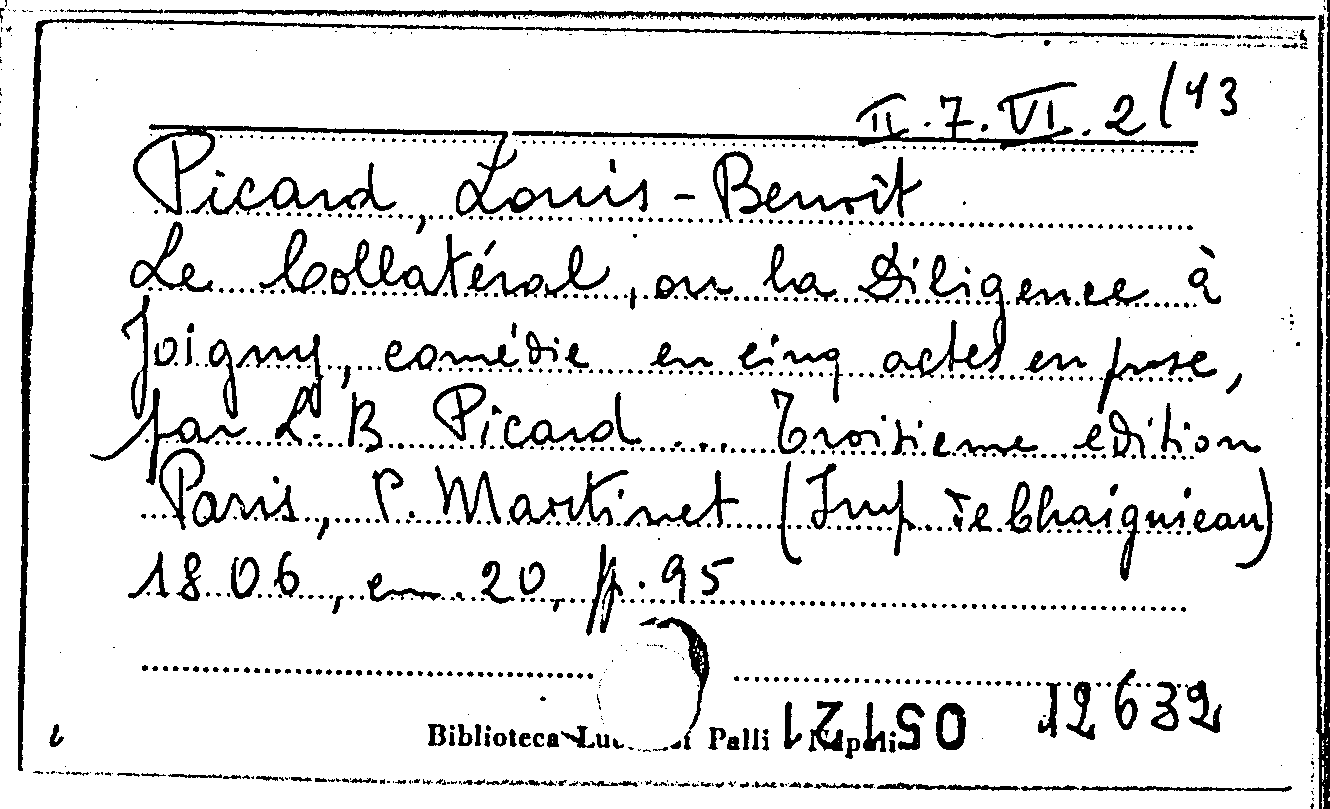 II.7.VI.2/43
Picard, Louis-Benoît
Le Collatéral, ou la Diligence à
Joigny, comédie en cinq actes en prose,
par L. B. Picard ... Troisieme edition
Paris, P. Martinet (Imp de Chaignieau)
1806, cm. 20, pp. 95
12632
Biblioteca Palli